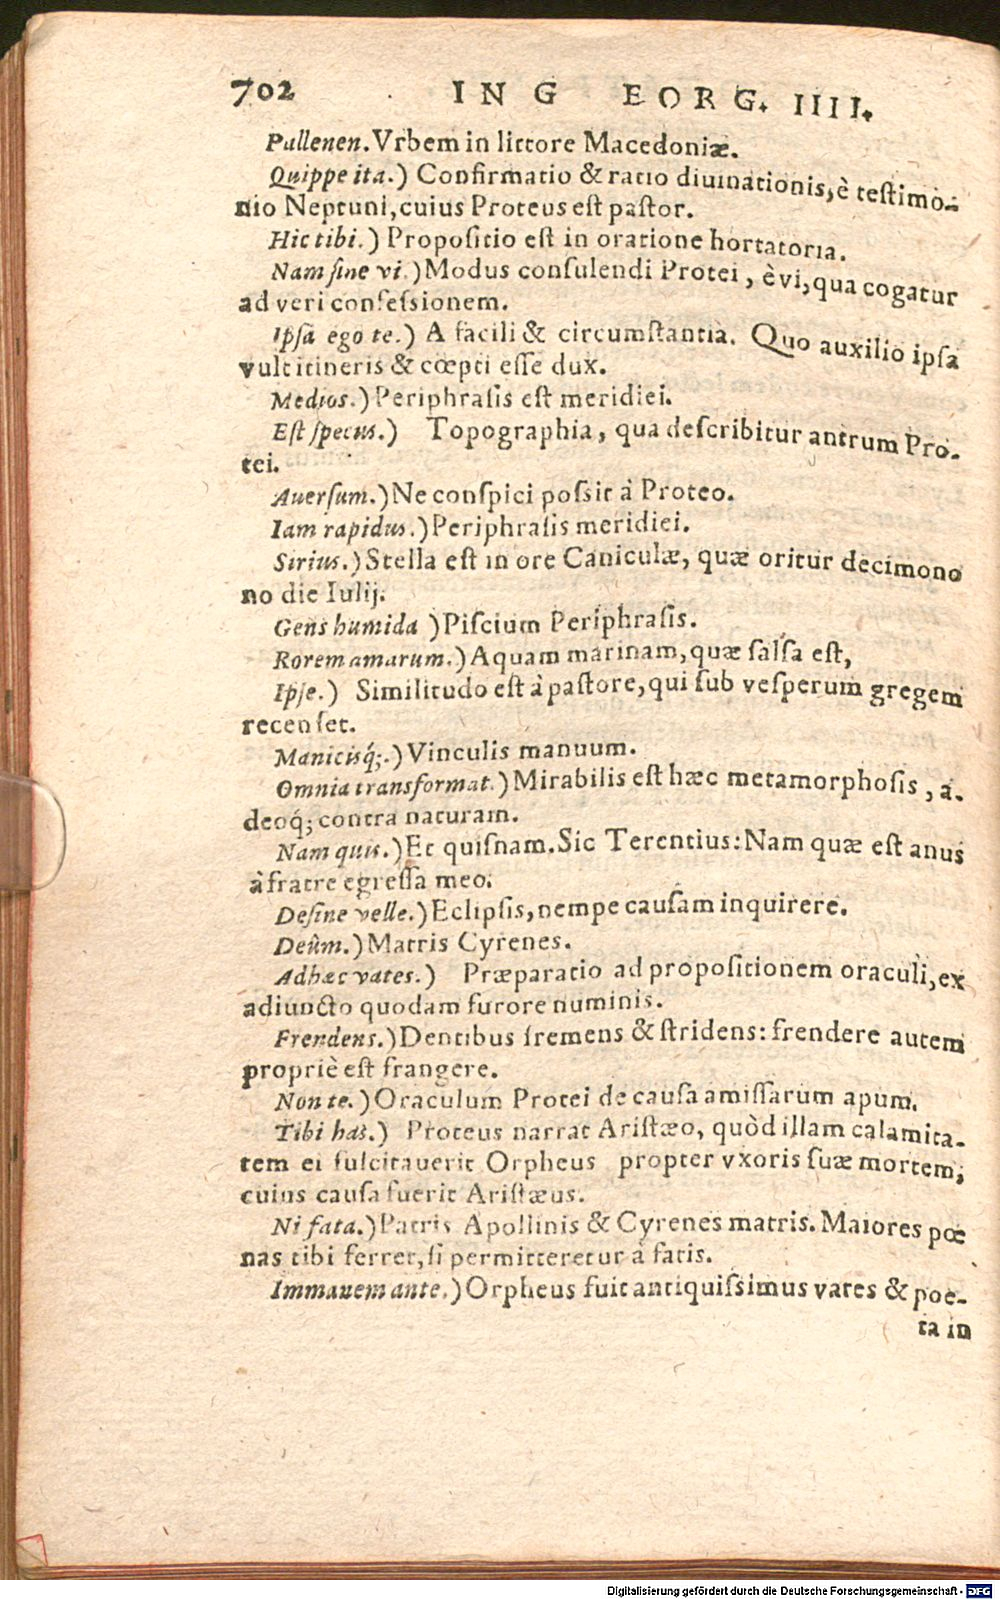 702 IN G EORG. IIII.
Pallenen. Vrbem in littore Macedoniæ.
Quippe ita.) Confirmatio & ratio diuinationis, è testimo-
nio Neptuni, cuius Proteus est pastor.
Hic tibi.) Propositio est in oratione hortatoria.
Nam sine vi.) Modus consulendi Protei, è vi, qua cogatur
ad veri confessionem.
Ipsa ego te.) A facili & circumstantia. Quo auxilio ipsa
vult itineris & cœpti esse dux.
Medios.) Periphrasis est meridiei.
Est specus.) Topographia, qua describitur antrum Pro-
tei.
Auersum.) Ne conspici possit à Proteo.
Iam rapidus.) Periphrasis meridiei.
Sirius.) Stella est in ore Caniculæ, quæ oritur decimono
no die Iulij.
Gens humida ) Piscium Periphrasis.
Rorem amarum.) Aquam marinam, quæ salsa est,
Ipse.) Similitudo est à pastore, qui sub vesperum gregem
recenset.
Manicisq́;.) Vinculis manuum.
Omnia transformat.) Mirabilis est hæc metamorphosis, a-
deoq́; contra naturam.
Nam quis.) Et quisnam. Sic Terentius: Nam quæ est anus
à fratre egressa meo.
Desine velle.) Eclipsis, nempe causam inquirere.
Deûm.) Matris Cyrenes.
Ad hæc vates.) Præparatio ad propositionem oraculi, ex
adiuncto quodam furore numinis.
Frendens.) Dentibus fremens & stridens: frendere autem
propriè est frangere.
Non te.) Oraculum Protei de causa amissarum apum.
Tibi has.) Proteus narrat Aristæo, quòd illam calamita-
tem ei suscitauerit Orpheus propter vxoris suæ mortem,
cuius causa fuerit Aristæus.
Ni fata.) Patris Apollinis & Cyrenes matris. Maiores pœ
nas tibi ferret, si permitteretur à fatis.
Immanem ante.) Orpheus fuit antiquissimus vates & poe-
ta in
Digitalisierung gefördert durch die Deutsche Forschungsgemeinschaft - DFG